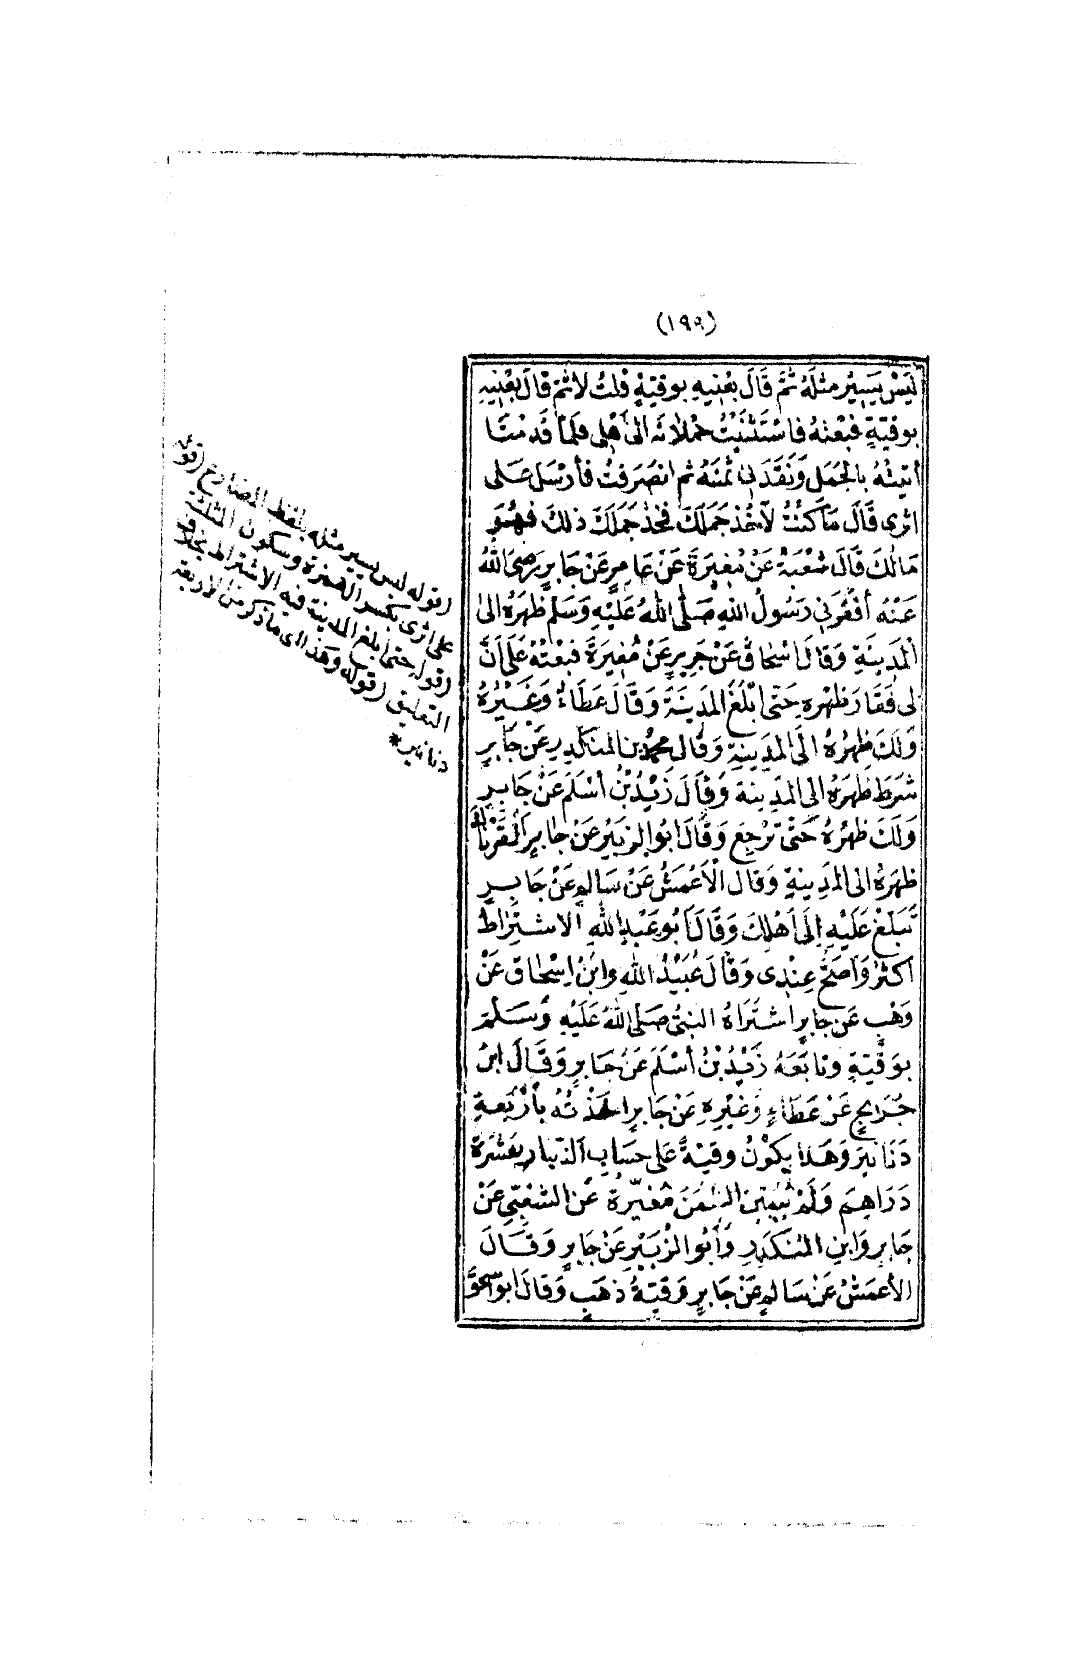 (١٩٩)
لَيْسَ يَسِيرُ مِثْلَهُ ثُمَّ قَالَ بِعْنِيهِ بِوَقِيَّةٍ قُلْتُ لَا ثُمَّ قَالَ بِعْنِيهِ
بِوَقِيَّةٍ فَبِعْتُهُ فَاسْتَثْنَيْتُ حُمْلَانَهُ إِلَى أَهْلِي فَلَمَّا قَدِمْنَا
أَتَيْتُهُ بِالْجَمَلِ وَنَقَدَنِي ثَمَنَهُ ثُمَّ انْصَرَفْتُ فَأَرْسَلَ عَلَى
اثْرِي قَالَ مَا كُنْتُ لِآخُذَ جَمَلَكَ فَخُذْ جَمَلَكَ ذَلِكَ فَهُوَ
مَالُكَ قَالَ شُعْبَةُ عَنْ مُغِيرَةَ عَنْ عَامِرٍ عَنْ جَابِرٍ رَضِيَ اللهُ
عَنْهُ أَفْقَرَنِي رَسُولُ اللهِ صَلَّى اللهُ عَلَيْهِ وَسَلَّمَ ظَهْرَهُ إِلَى
الْمَدِينَةِ وَقَالَ اسْحَاقُ عَنْ جَرِيرٍ عَنْ مُغِيرَةَ فَبِعْتُهُ عَلَى أَنَّ
لِي فَقَارَ ظَهْرِهِ حَتَّى ابْلُغَ الْمَدِينَةَ وَقَالَ عَطَاءٌ وَغَيْرُهُ
وَلَكَ ظَهْرُهُ إِلَى الْمَدِينَةِ وَقَالَ مُحَمَّدُ بْنُ الْمُنْكَدِرِ عَنْ جَابِرٍ
شَرَطَ ظَهْرَهُ إِلَى الْمَدِينَةِ وَقَالَ زَيْدُ بْنُ أَسْلَمَ عَنْ جَابِرٍ
وَلَكَ ظَهْرُهُ حَتَّى تَرْجِعَ وَقَالَ ابُو الزُّبَيْرِ عَنْ جَابِرٍ افْقَرْنَاكَ
ظَهْرَهُ إِلَى الْمَدِينَةِ وَقَالَ الْأَعْمَشُ عَنْ سَالِمٍ عَنْ جَابِرٍ
تَبَلَّغْ عَلَيْهِ إِلَى أَهْلِكَ وَقَالَ أَبُو عَبْدِ اللهِ الاشْتِرَاطُ
اكْثَرُ وَأَصَحُّ عِنْدِي وَقَالَ عُبَيْدُ اللهِ وَابْنُ إِسْحَاقَ عَنْ
وَهْبٍ عَنْ جَابِرٍ اشْتَرَاهُ النَّبِيُّ صَلَّى اللهُ عَلَيْهِ وَسَلَّمَ
بِوَقِيَّةٍ وَتَابَعَهُ زَيْدُ بْنُ أَسْلَمَ عَنْ جَابِرٍ وَقَالَ ابْنُ
جُرَيْجٍ عَنْ عَطَاءٍ وَغَيْرِهِ عَنْ جَابِرٍ اخَذْتُهُ بِأَرْبَعَةِ
دَنَانِيرَ وَهَذَا يَكُونُ وَقِيَّةً عَلَى حِسَابِ الدِّينَارِ بِعَشَرَةِ
دَرَاهِمَ وَلَمْ يُبَيِّنِ الثَّمَنَ مُغِيرَةُ عَنِ الشَّعْبِيِّ عَنْ
جَابِرٍ وَابْنُ الْمُنْكَدِرِ وَأَبُو الزُّبَيْرِ عَنْ جَابِرٍ وَقَالَ
الْأَعْمَشُ عَنْ سَالِمٍ عَنْ جَابِرٍ وَقِيَّةُ ذَهَبٍ وَقَالَ ابُو اسْحَقَ
(قوله ليس يسير مثله بلفظ المضارع (قوله
على اثرى بكسر الهمزة وسكون المثلثة
(قوله حتى ابلغ المدينة فيه الاشتراط بخلاف
التعليق (قوله وهذا اى ماذكر من الاربعة
دنانير *